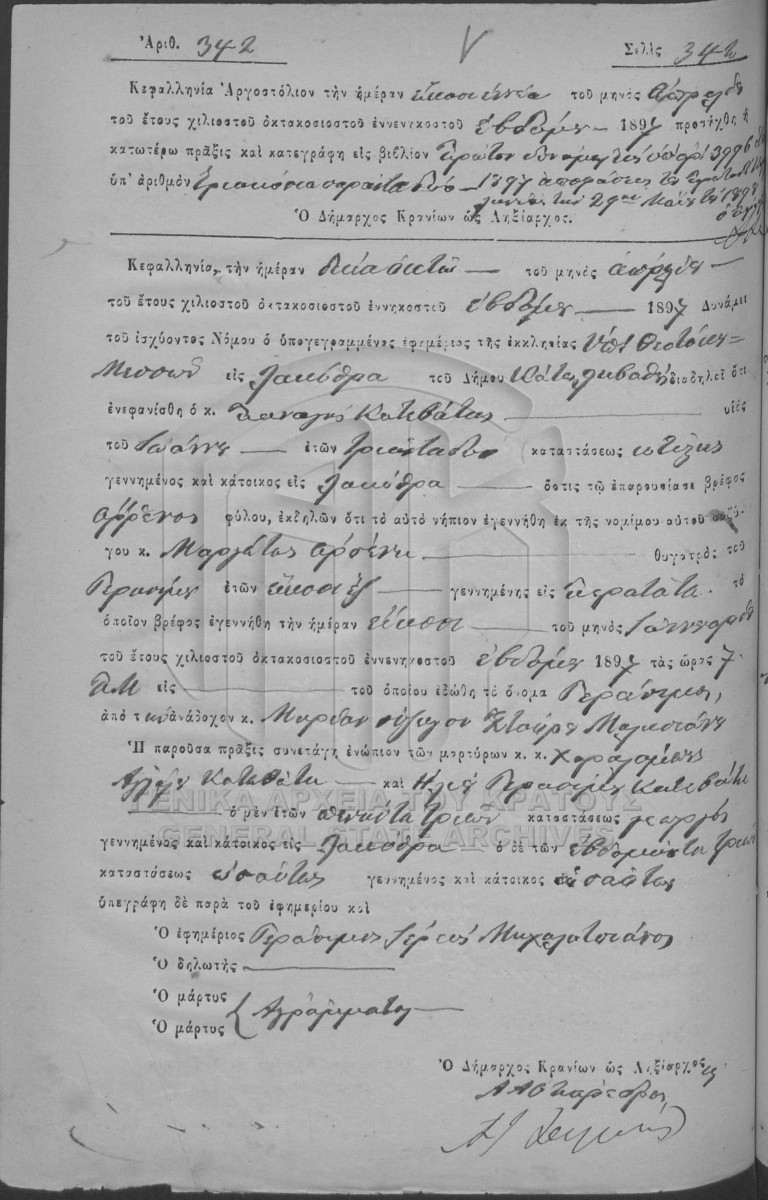 Ἀριθ. 342 Σελὶς 342
Κεφαλληνία Ἀργοστόλιον τὴν ἡμέραν εἴκοσι ἐννέα τοῦ μηνὸς
τοῦ ἔτους χιλιοστοῦ ὀκτακοσιοστοῦ ἐννενηκοστοῦ ἑβδόμου 1897 προσήχθη ἡ
κατωτέρω πρᾶξις καὶ κατεγράφη εἰς βιβλίον πρῶτον
ὑπ' ἀριθμὸν τριακόσια σαράντα δύο
Ὁ Δήμαρχος Κρανίων ὡς Ληξίαρχος.
Κεφαλληνία, τὴν ἡμέραν δέκα ὀκτὼ τοῦ μηνὸς Ἀπριλίου
τοῦ ἔτους χιλιοστοῦ ὀκτακοσιοστοῦ ἐννηκοστοῦ ἑβδόμου 1897 Δυνάμει
τοῦ ἰσχύοντος Νόμου ὁ ὑπογεγραμμένος ἐφημέριος τῆς ἐκκλησίας Θεοτόκου
εἰς Λακύθρα τοῦ Δήμου διαδηλοῖ ὅτι
ἐνεφανίσθη ὁ κ. Παναγῆς Κατεβάτης υἱὸς
τοῦ Ἰωάννου ἐτῶν τριάντα δύο καταστάσεως κτίστης
γεννημένος καὶ κάτοικος εἰς Λακύθρα ὅστις τῷ ἐπαρουσίασε βρέφος
ἄρρενος φύλου, ἐκδηλῶν ὅτι τὸ αὐτὸ νήπιον ἐγεννήθη ἐκ τῆς νομίμου αὐτοῦ συζύ-
γου κ. Μαργέτας Ἀρσένη θυγατρὸς τοῦ
Γερασίμου ἐτῶν εἴκοσι ἕξ γεννημένης εἰς Περατάτα. τὸ
ὁποῖον βρέφος ἐγεννήθη τὴν ἡμέραν εἴκοσι τοῦ μηνὸς Ἰαννουαρίου
τοῦ ἔτους χιλιοστοῦ ὀκτακοσιοστοῦ ἐννενηκοστοῦ ἑβδόμου 1897 τὰς ὥρας 7
Π.Μ εἰς τοῦ ὁποίου ἐδώθη τὸ ὄνομα Γεράσιμος,
ἀπὸ τὴν ἀνάδοχον κ. σύζυγον Σταύρου
Ἡ παροῦσα πρᾶξις συνετάγη ἐνώπιον τῶν μαρτύρων κ. κ. Χαραλάμπους
Κατεβάτη καὶ Ἠλία Γερασίμου Κατεβάτη
ὁ μὲν ἐτῶν πενῆντα τριῶν καταστάσεως γεωργὸς
γεννημένος καὶ κάτοικος εἰς Λακύθρα ὁ δὲ τῶν ἑβδομῆντα τριῶν
καταστάσεως ὡσαύτως γεννημένος καὶ κάτοικος ὡσαύτως
ὑπεγράφη δὲ παρὰ τοῦ ἐφημερίου καὶ
Ὁ ἐφημέριος Γεράσιμος Ἱερεὺς Μιχαλατσιάνος
Ὁ δηλωτὴς
Ὁ μάρτυς
Ὁ μάρτυς Ἀγράμματοι
Ὁ Δήμαρχος Κρανίων ὡς Ληξίαρχος
ΓΕΝΙΚΑ ΑΡΧΕΙΑ ΤΟΥ ΚΡΑΤΟΥΣ
GENERAL STATE ARCHIVES